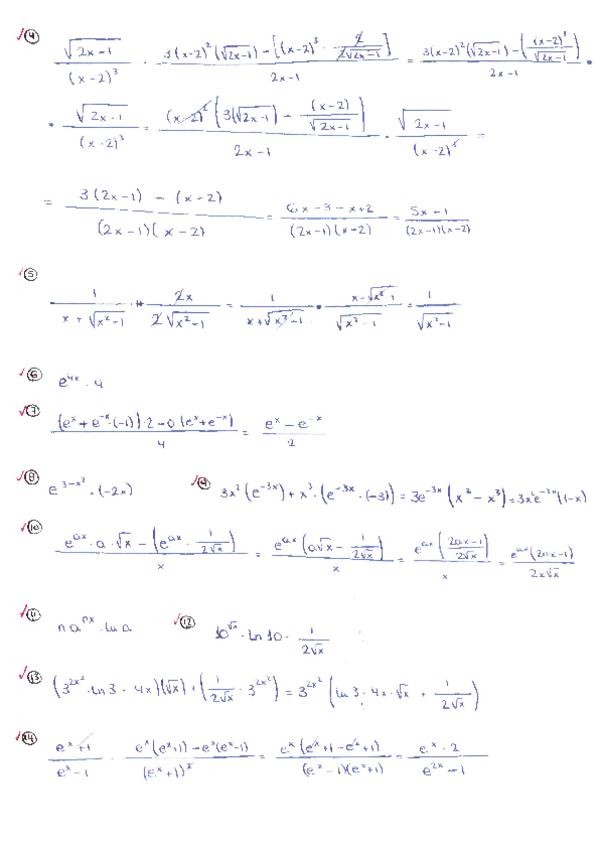 ✓④ √(2x-1)/(x-2)³ · (3(x-2)²(√(2x-1)) - [(x-2)³ · 2/(2√(2x-1))])/(2x-1) = (3(x-2)²(√(2x-1)) - ((x-2)³/√(2x-1)))/(2x-1) ·
· √(2x-1)/(x-2)³ = ((x-2)² (3(√(2x-1)) - (x-2)/√(2x-1)))/(2x-1) · √(2x-1)/(x-2)³ =
= (3(2x-1) - (x-2))/((2x-1)(x-2)) = (6x-3-x+2)/((2x-1)(x-2)) = (5x-1)/((2x-1)(x-2))
✓⑤
1/(x+√(x²-1)) · 2x/(2√(x²-1)) = 1/(x+√(x²-1)) · (x+√(x²-1))/√(x²-1) = 1/√(x²-1)
✓⑥ e^(4x) · 4
✓⑦ ((eˣ+e⁻ˣ·(-1))·2-0(eˣ+e⁻ˣ))/4 = (eˣ-e⁻ˣ)/2
✓⑧ e^(3-x²) · (-2x) ✓⑨ 3x²(e^(-3x))+x³·(e^(-3x)·(-3)) = 3e^(-3x)(x²-x³) = 3x²e^(-3x)(1-x)
✓⑩ (e^(ax)·a·√x-(e^(ax)·1/(2√x)))/x = (e^(ax)(a√x-1/(2√x)))/x = (e^(ax)((2ax-1)/(2√x)))/x = (e^(ax)(2ax-1))/(2x√x)
✓⑪ n a^(nx) · ln a ✓⑫ 10^(√x) · ln 10 · 1/(2√x)
✓⑬ (3^(2x²)·ln3·4x)(√x)+(1/(2√x)·3^(2x²)) = 3^(2x²)(ln3·4x·√x+1/(2√x))
✓⑭ (eˣ+1)/(eˣ-1) · (eˣ(eˣ+1)-eˣ(eˣ-1))/(eˣ+1)² = (eˣ(eˣ+1-eˣ+1))/((eˣ-1)(eˣ+1)) = (eˣ·2)/(e^(2x)-1)